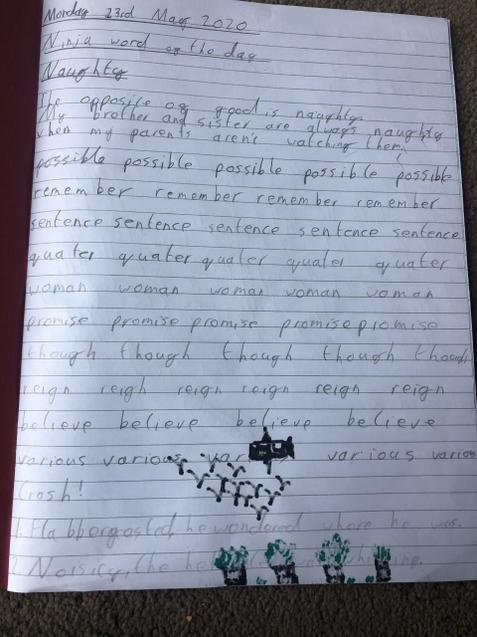 Monday 23rd May 2020
Ninja word of the day
Naughty
The opposite of good is naughty.
My brother and sister are always naughty
when my parents aren't watching them.
possible possible possible possible possible
remember remember remember remember
sentence sentence sentence sentence sentence
quater quater quater quater quater
woman woman woman woman woman
promise promise promise promise promise
though though though though though
reign reigh reign reign reign reign
believe believe believe believe
various various var various various
Gosh!
1. Flabbergasted, he wondered where he was.
2. Noisily, the